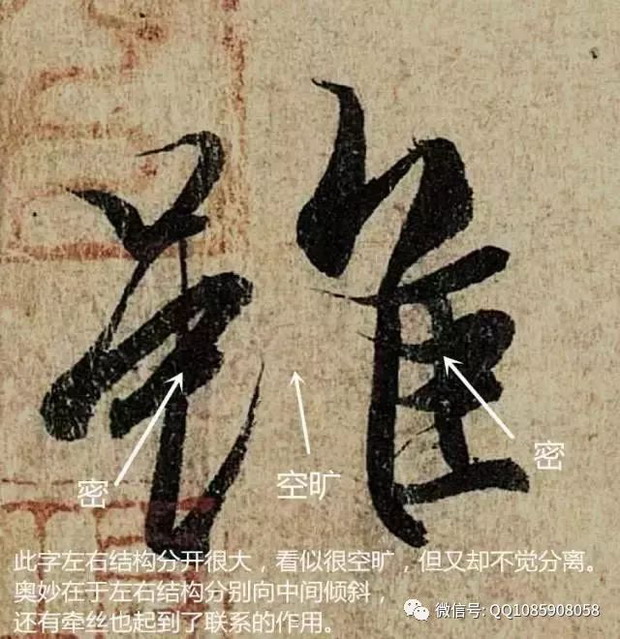 雖
密
空旷
密
此字左右结构分开很大，看似很空旷，但又却不觉分离。
奥妙在于左右结构分别向中间倾斜，
还有牵丝也起到了联系的作用。
微信号: QQ1085908058